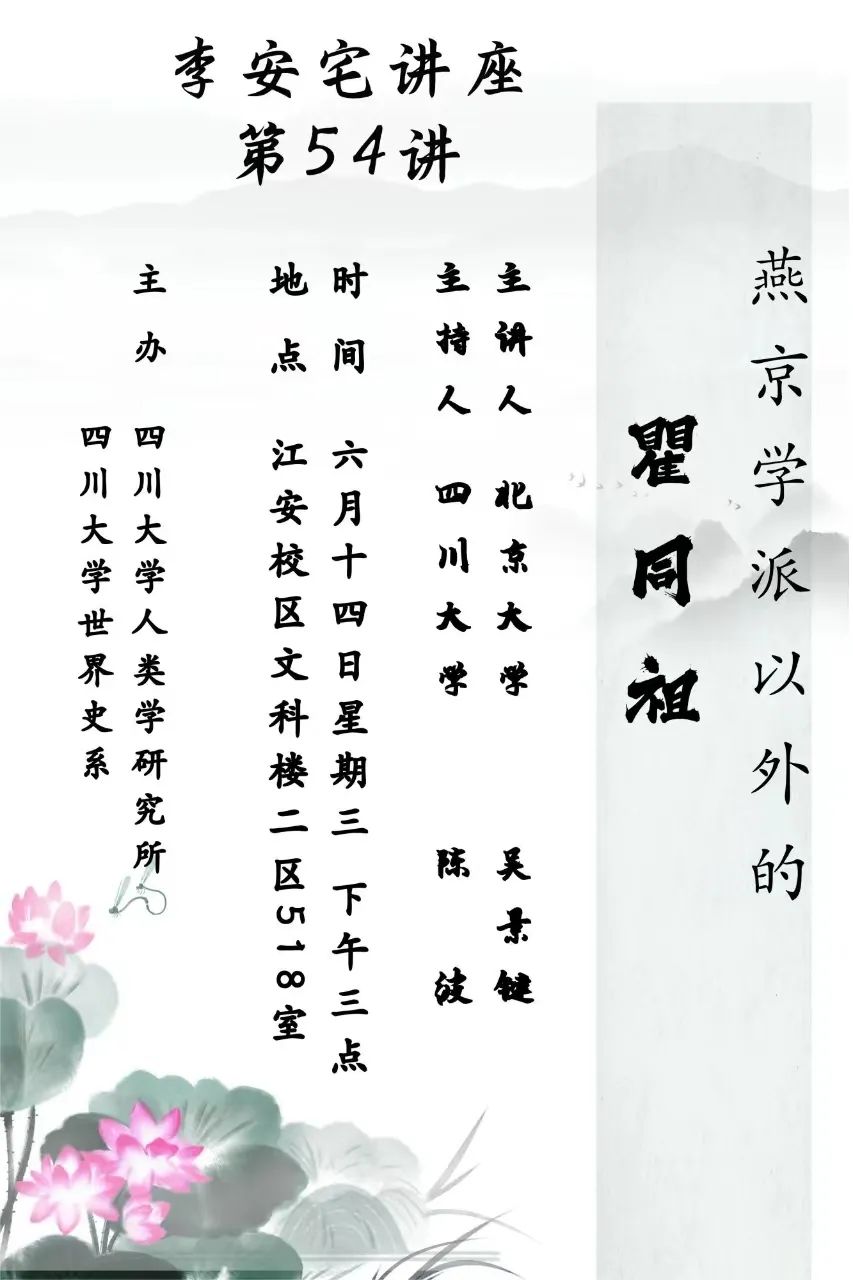 李安宅讲座
第54讲
燕京学派以外的
瞿同祖
主讲人 北京大学 吴景键
主持人 四川大学 陈波
时间 六月十四日星期三 下午三点
地点 江安校区文科楼二区518室
主办 四川大学人类学研究所
四川大学世界史系